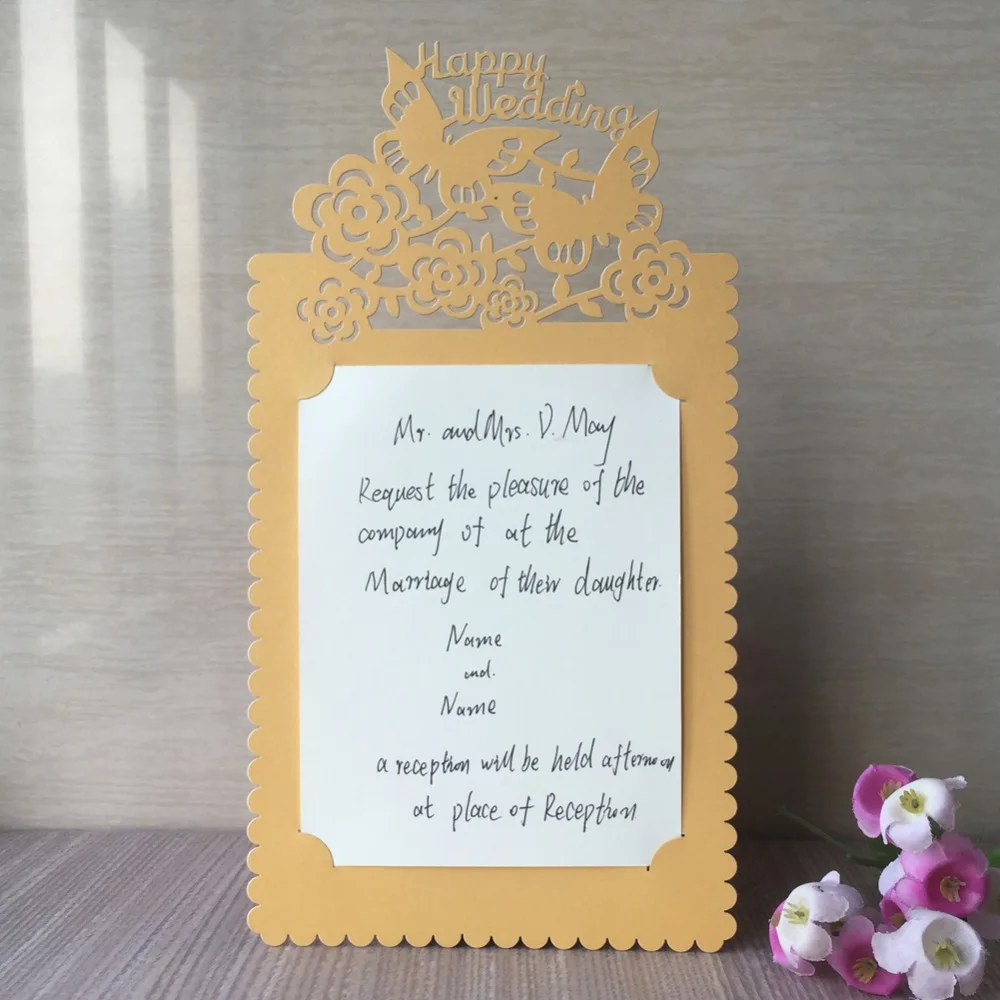 Happy
Wedding
Mr. and Mrs. D. May
Request the pleasure of the
company of at the
Marriage of their daughter.
Name
and.
Name
a reception will be held afternoon
at place of Reception